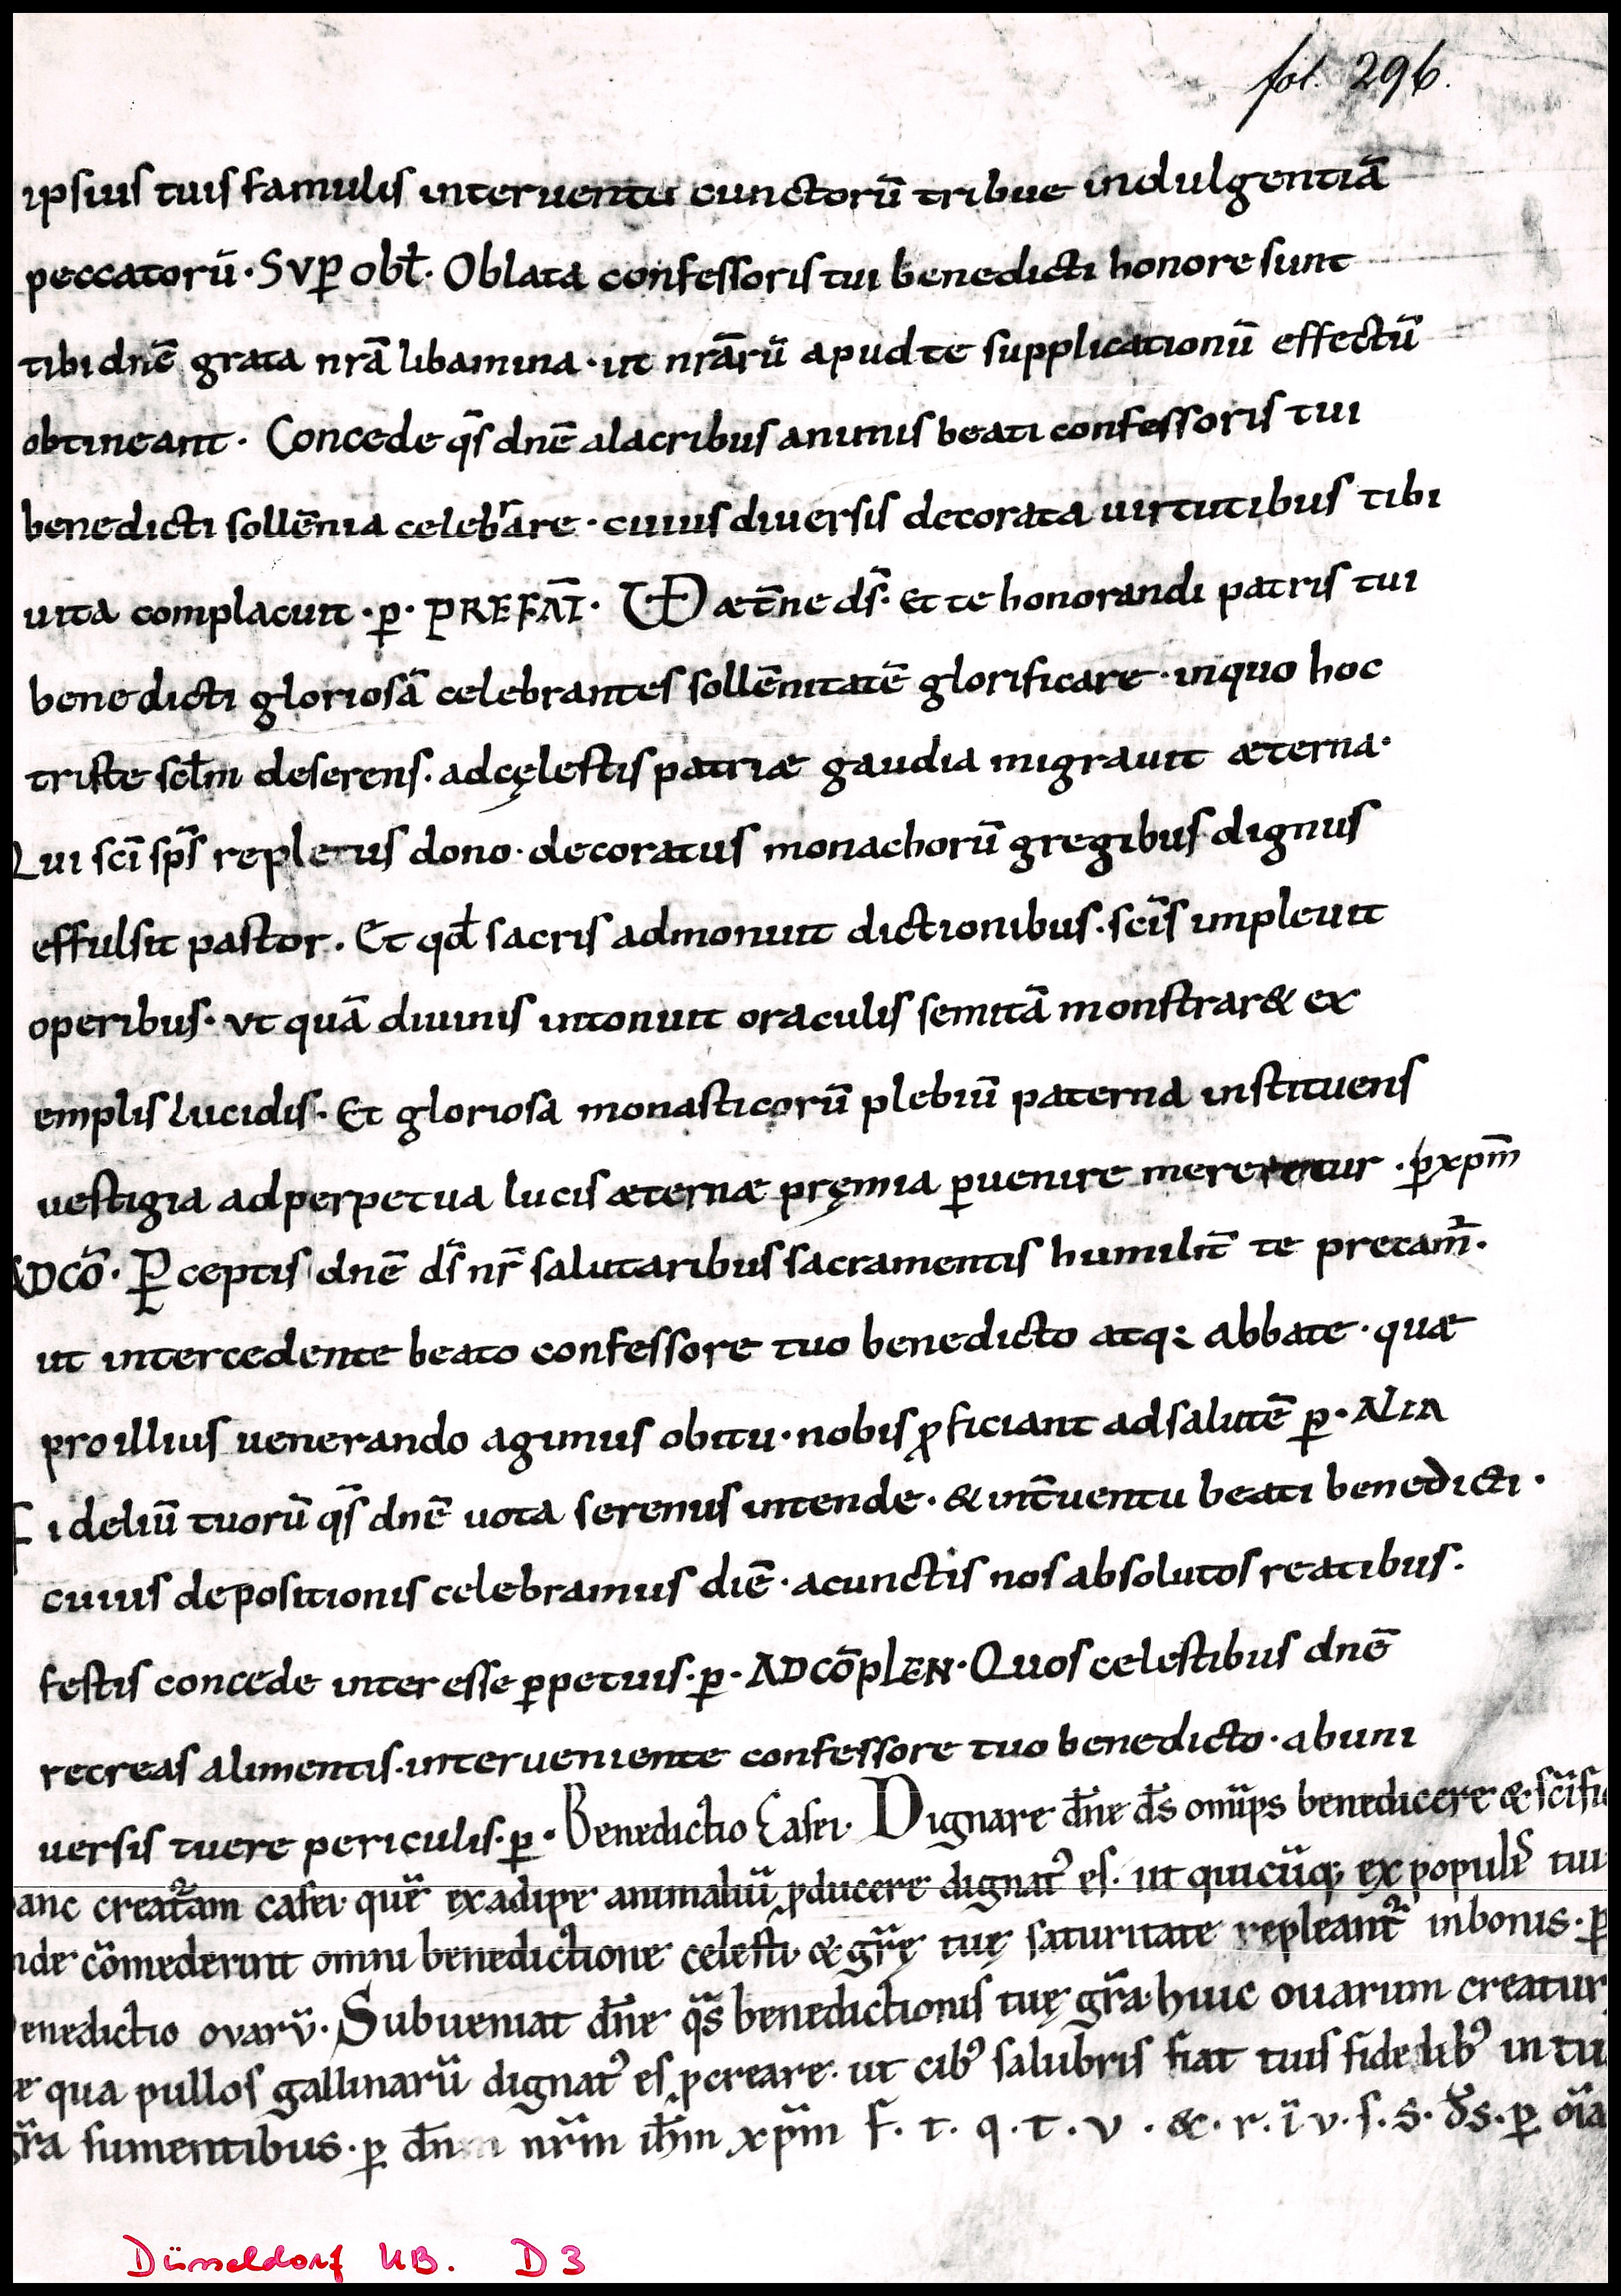 fol. 296.
ipsius tuis famulis interuentu cunctorū tribue indulgentiā
peccatorū · SVꝑ obł · Oblata confessoris tui benedicti honore sunt
tibi dnē grata nrā libamina · ut nrārū apud te supplicationū effectū
obtineant · Concede qs̄ dnē alacribus animis beati confessoris tui
benedicti sollēnia celebrare · cuius diuersis decorata uirtutibus tibi
uita complacuit · ꝑ · PREFAT̄ · VD æt̄ne ds̄ · Et te honorandi patris tui
benedicti gloriosā celebrantes sollēnitatē glorificare · inquo hoc
triste scłm deserens · adcęlestis patriæ gaudia migrauit æterna ·
Qui scī sp̄s repletus dono · decoratus monachorū gregibus dignus
effulsit pastor · Et qđ sacris admonuit dictionibus · scīs impleuit
operibus · vt quā diuinis intonuit oraculis semitā monstrar& ex
emplis lucidis · Et gloriosa monasticorū plebiū paterna instituens
vestigia ad perpetua lucis æternæ pręmia ꝑuenire mereretur · ꝑ xpm̄
ADCŌ · Ꝑceptis dnē ds̄ nr̄ salutaribus sacramentis humilit̄ te precam̄ ·
ut intercedente beato confessore tuo benedicto atq: abbate · quæ
pro illius uenerando agimus obitu · nobis ꝓficiant ad salutē ꝑ · ALIA
Fideliū tuorū qs̄ dnē uota serenus intende · & int̄uentu beati benedicti ·
cuius depositionis celebramus diē · acunctis nos absolutos reatibus ·
festis concede interesse ꝑpetuis · ꝑ · ADCŌPLEN · Quos celestibus dnē
recreas alimentis · interueniente confessore tuo benedicto · abuni
uersis tuere periculis · ꝑ · Benedictio Casei · Dignare dn̄e ds̄ omīps benedicere & scīfi
anc creat̄am casei quē ex adipe animaliū ꝓducere dignat᾽ es · ut quicūq; ex populis tui
nde cōmederint omni benedictione celesti & gr̄ę tuę saturitate repleant᾽ inbonis · ꝑ
enedictio ovarū · Subueniat dn̄e qs̄ benedictionis tuę gr̄a huic ouarum creatur
e qua pullos gallinarū dignat᾽ es ꝓcreare · ut cib᾽ salubris fiat tuis fidelib᾽ in tu
gr̄a sumentibus · ꝑ dn̄ nr̄m ih̄m xp̄m f · t · q · t · v · & · r · ī v · s · s · ds̄ · ꝑ oīa
Düsseldorf UB. D 3